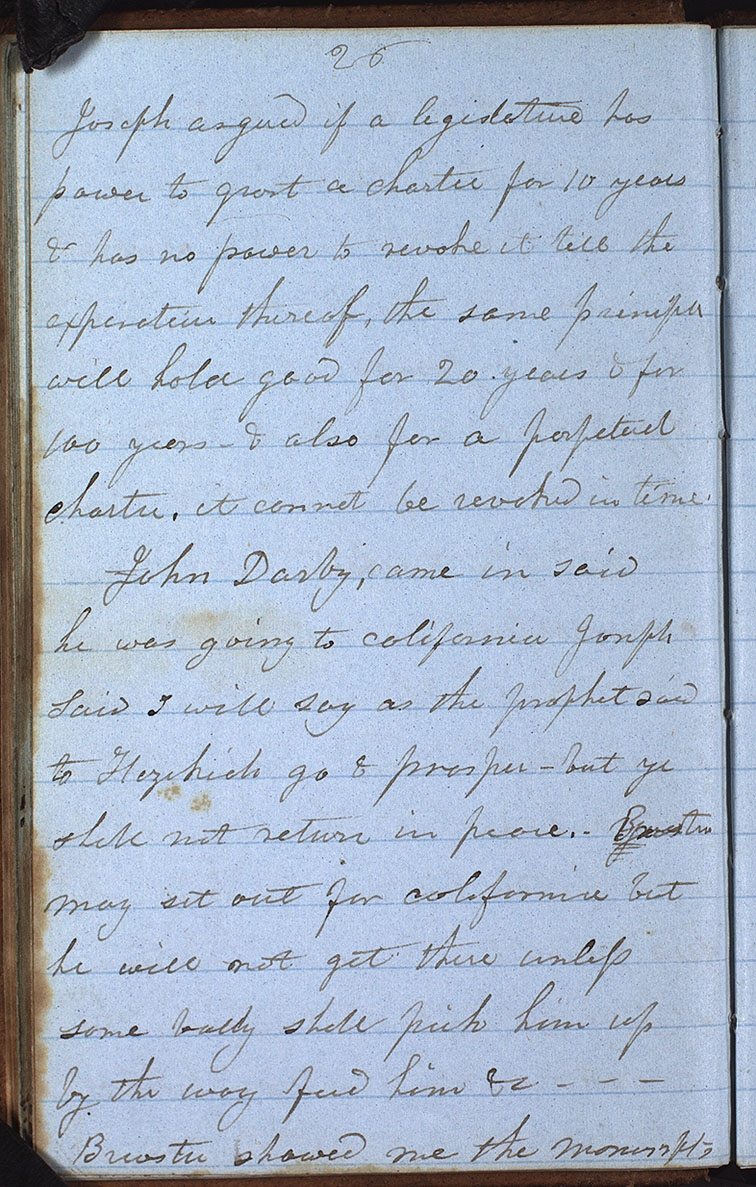 26
Joseph argued if a legislature has
power to grant a charter for 10 years
& has no power to revoke it till the
experation thereof, the same principle
will hold good for 20. years & for
100 years - & also for a perpetual
charter, it cannot be revoked in time.
John Darby, came in said
he was going to california Joseph
said I will say as the prophet said
to Hezekiah go & prosper - but ye
shall not return in peace. - Brewster
may set out for california but
he will not get there unless
some body shall pick him up
by the way feed him &c - - -
Brewster showed me the manuscripts